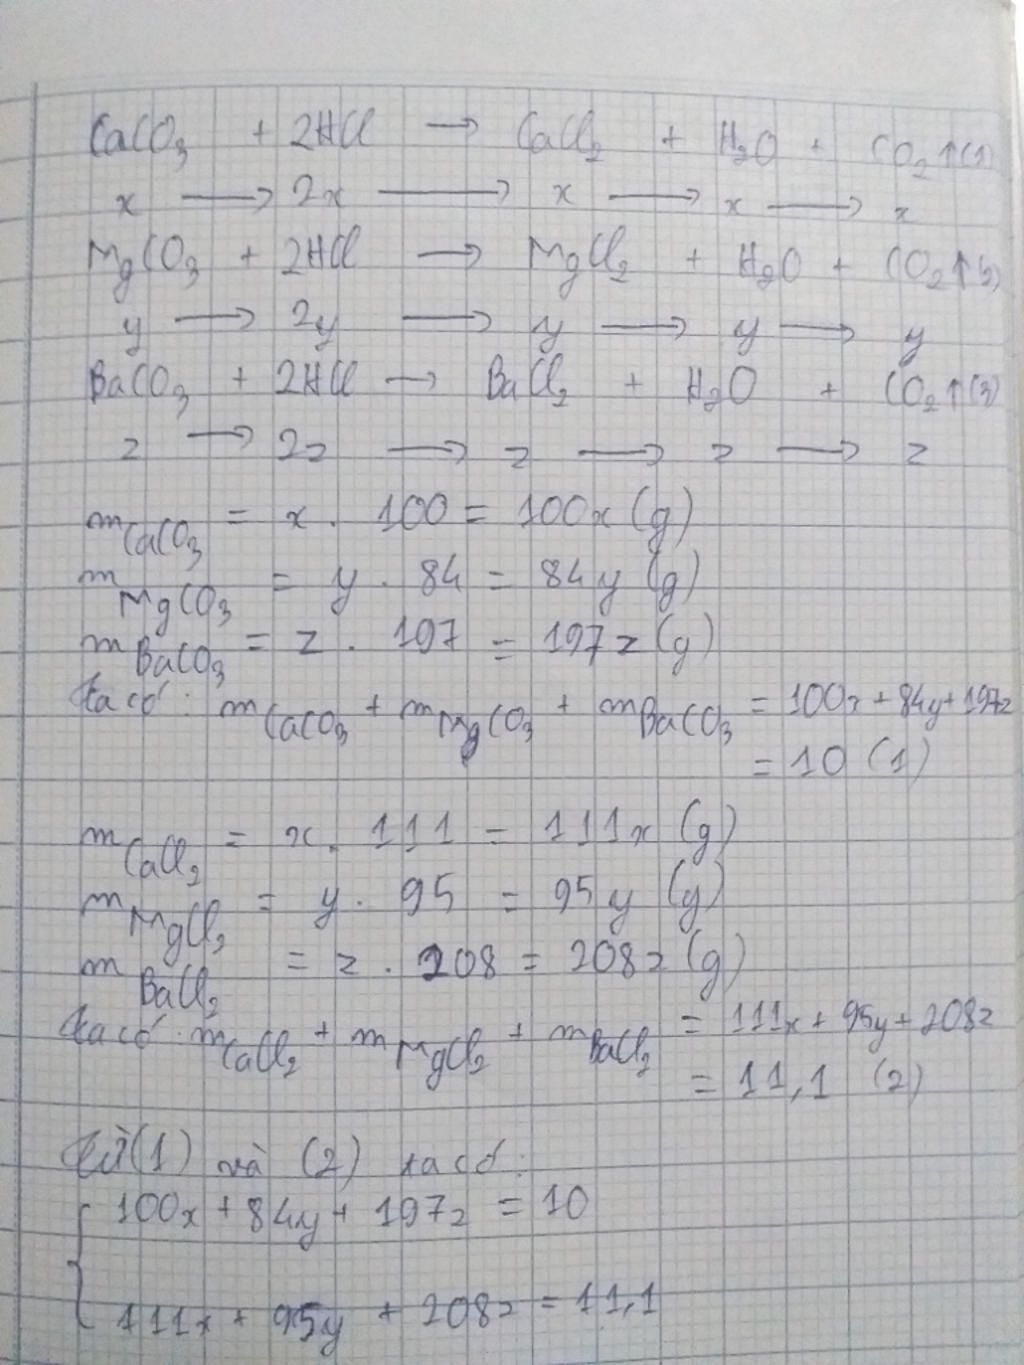 CaCO₃ + 2HCl → CaCl₂ + H₂O + CO₂↑(1)
x → 2x → x → x → x
MgCO₃ + 2HCl → MgCl₂ + H₂O + CO₂↑(2)
y → 2y → y → y → y
BaCO₃ + 2HCl → BaCl₂ + H₂O + CO₂↑(3)
z → 2z → z → z → z
m CaCO₃ = x . 100 = 100x (g)
m MgCO₃ = y . 84 = 84y (g)
m BaCO₃ = z . 197 = 197z (g)
ta có : m CaCO₃ + m MgCO₃ + m BaCO₃ = 100x + 84y + 197z
= 10 (1)
m CaCl₂ = x . 111 = 111x (g)
m MgCl₂ = y . 95 = 95y (g)
m BaCl₂ = z . 208 = 208z (g)
ta có : m CaCl₂ + m MgCl₂ + m BaCl₂ = 111x + 95y + 208z
= 11,1 (2)
từ (1) và (2) ta có :
{ 100x + 84y + 197z = 10
111x + 95y + 208z = 11,1